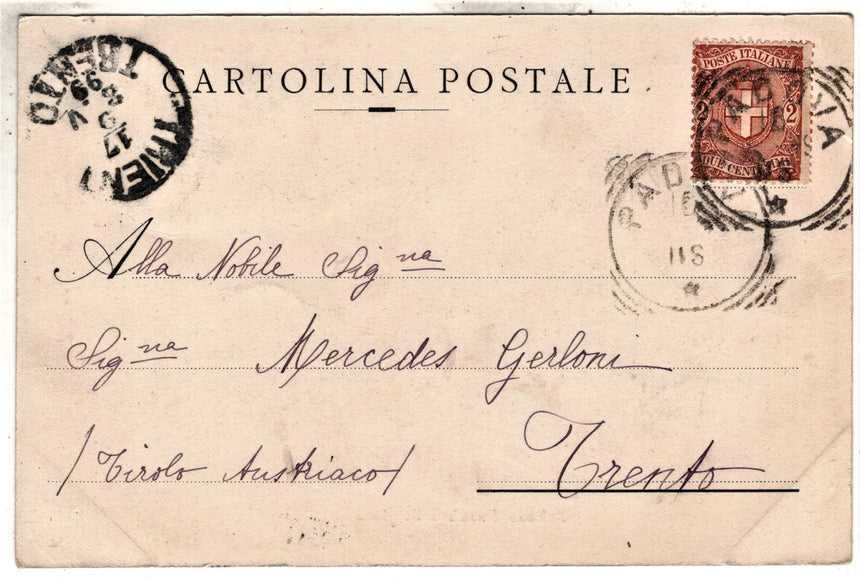 CARTOLINA POSTALE
POSTE ITALIANE
2 2
DUE CENTESIMI
PADOVA
PADOVA
TRIENT
17
5
99
TRENTO
Alla Nobile Sig na
Sig na Mercedes Gerloni
/Tirolo Austriaco/ Trento